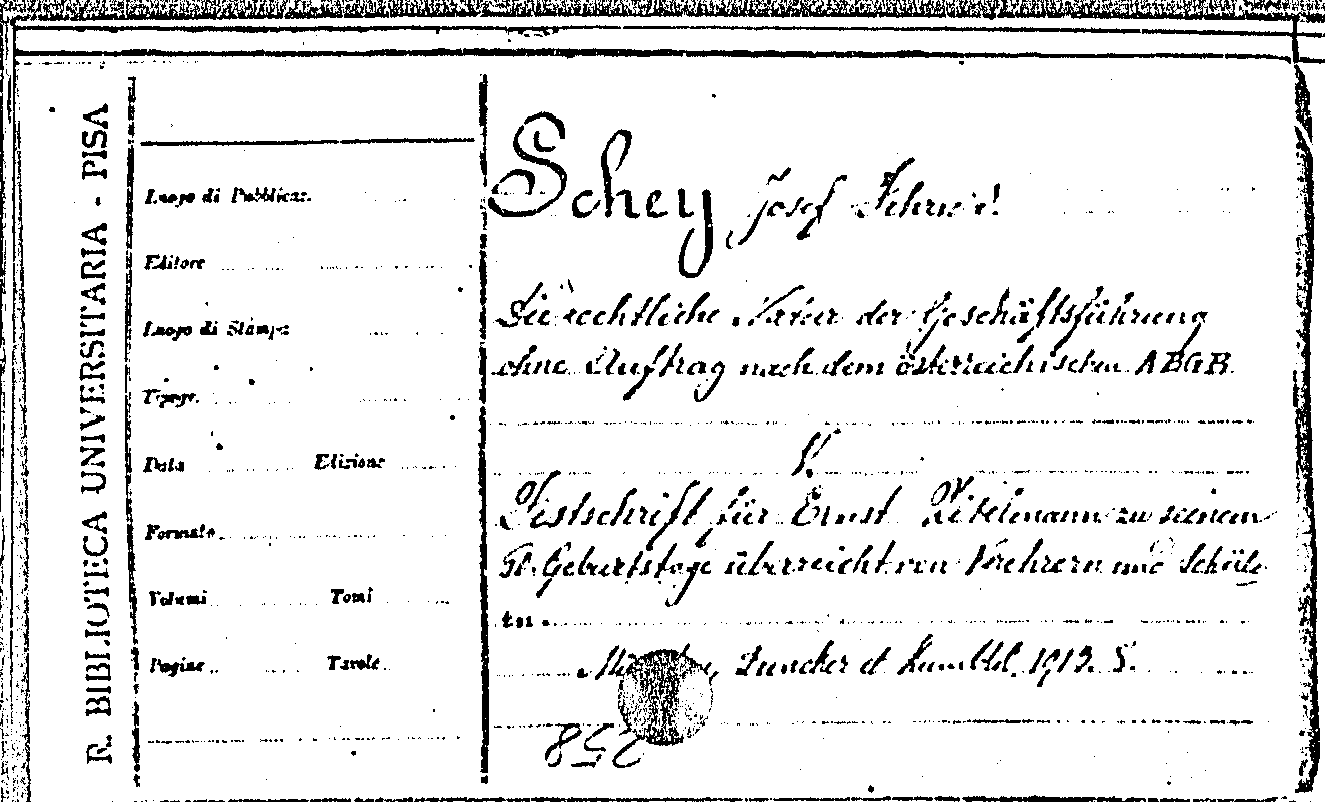 R. BIBLIOTECA UNIVERSITARIA - PISA
Luogo di Pubblicaz.
Editore
Luogo di Stampa
Tipogr.
Data Edizione
Formato
Volumi Tomi
Pagine Tavole
Schey Josef
Die rechtliche Natur der Geschäftsführung
ohne Auftrag nach dem österreichischen ABGB.
Festschrift für Ernst Zitelmann zu seinem
Geburtstage überreicht von Verehrern und Schüle
Duncker et Humblot, 1913. 8.
258